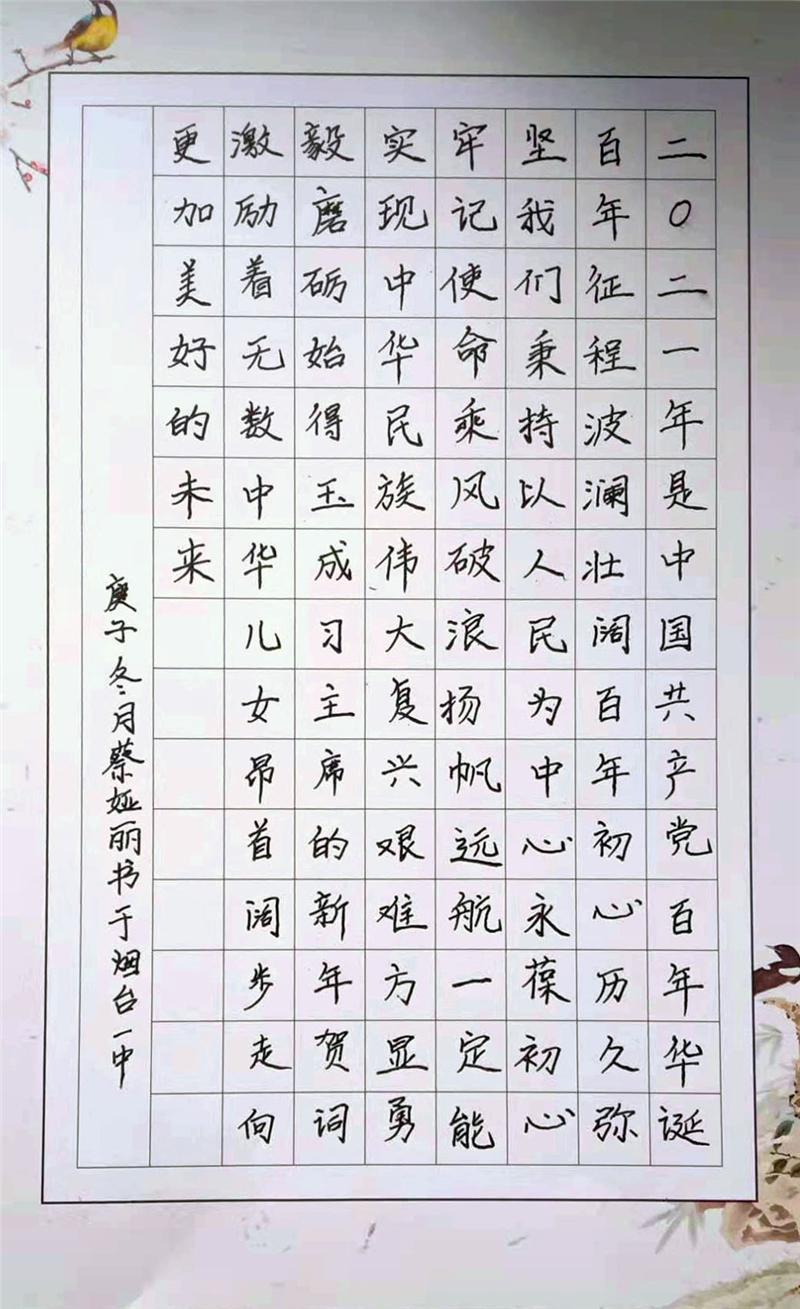 二〇二一年是中国共产党百年华诞
百年征程波澜壮阔百年初心历久弥
坚我们秉持以人民为中心永葆初心
牢记使命乘风破浪扬帆远航一定能
实现中华民族伟大复兴艰难方显勇
毅磨砺始得玉成习主席的新年贺词
激励着无数中华儿女昂首阔步走向
更加美好的未来
庚子冬月蔡娅丽书于烟台一中